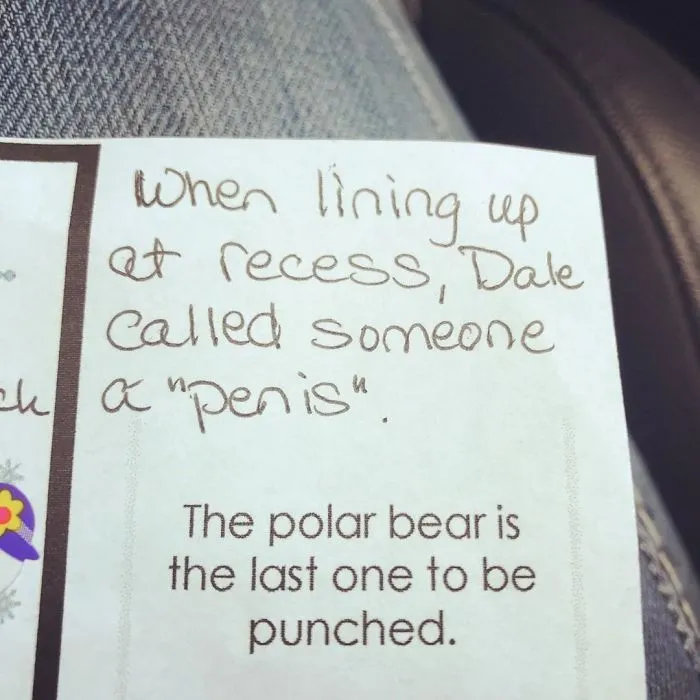 When lining up
at recess, Dale
called someone
ck
a "penis".
The polar bear is
the last one to be
punched.